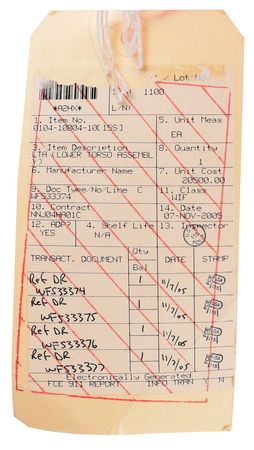 / Lot No.
S/N: 1100
*A2HX* L/N:
1. Item No. 5. Unit Meas
0104-10004-10[15S] EA
3. Item Description 8. Quantity
LTA (LOWER TORSO ASSEMBL
Y) 1
6. Manufacturer Name 7. Unit Cost
20500.00
9. Doc Type/No/Line C 11. Class
WF533373 WIF
10. Contract 14. Date
NNJ04HA01C 07-NOV-2005
12. ADP? 4. Shelf Life 13. Inspector
YES N/A
TRANSACT. DOCUMENT Qty Bal DATE STAMP
Ref DR 1 11/7/05
WF533374
Ref DR 1 11/7/05
WF533375
Ref DR 1 11/7/05
WF533376
Ref DR 1 11/7/05
WF533377
Electronically Generated
FCE 911 REPORT INFO TRAN Y N